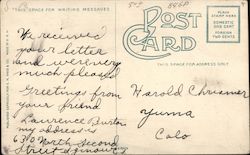 THIS SPACE FOR WRITING MESSAGES
POST CARD
PLACE STAMP HERE
DOMESTIC ONE CENT
FOREIGN TWO CENTS
THIS SPACE FOR ADDRESS ONLY
We received
your letter
and were very
much pleased
Greetings from
your friend
Lawrence Burton
my address is
630 North Second
Street
Harold Chrismer
Yuma
Colo